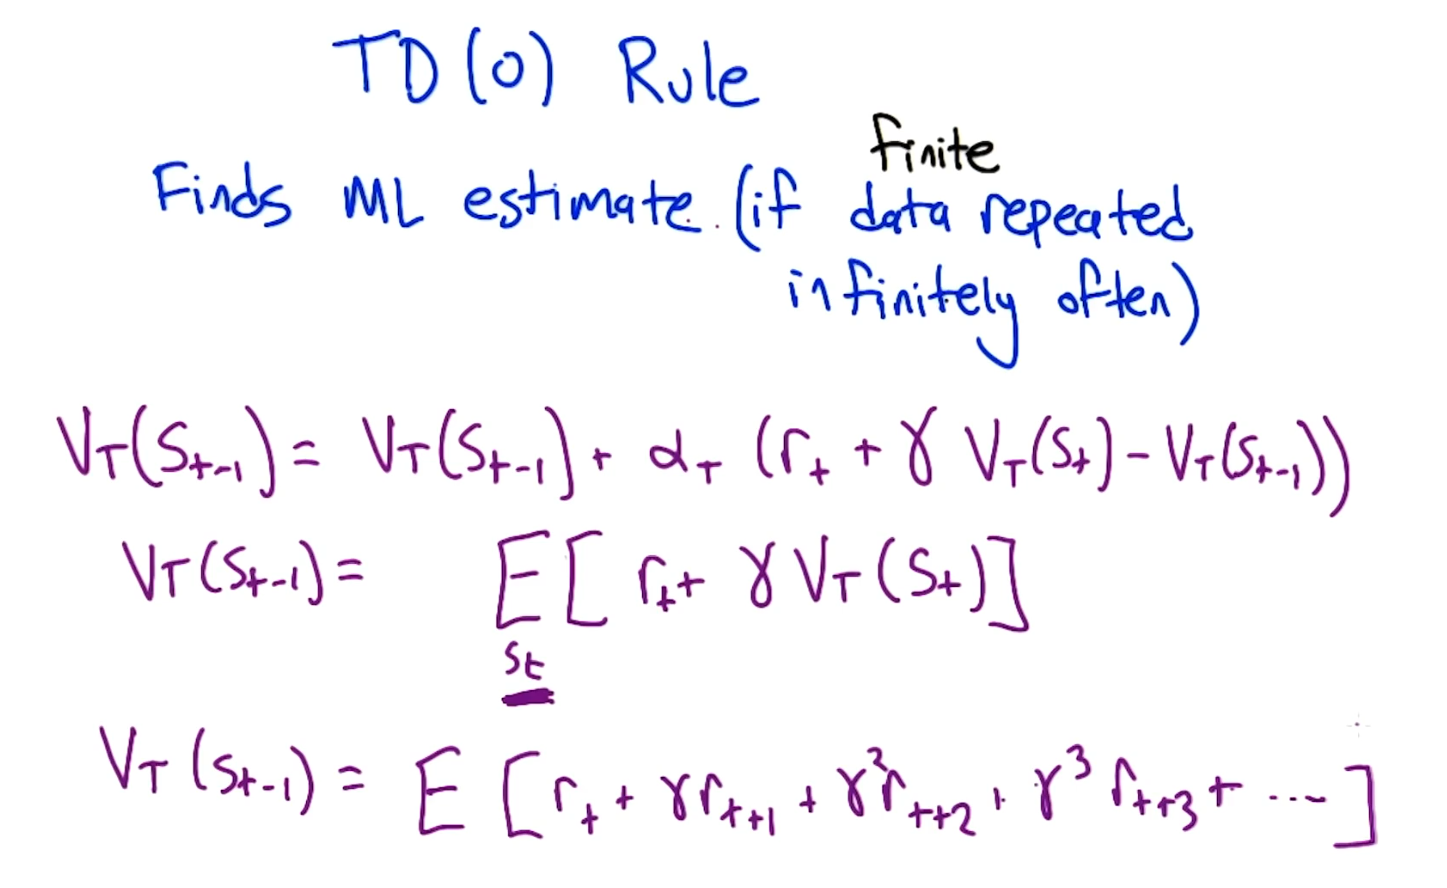 TD(0) Rule
finite
Finds ML estimate. (if data repeated
infinitely often)
V_T(S_{t-1}) = V_T(S_{t-1}) + α_T (r_t + γ V_T(S_t) - V_T(S_{t-1}))
V_T(S_{t-1}) = E[r_t + γ V_T(S_t)]
S_t
V_T(S_{t-1}) = E[r_t + γr_{t+1} + γ²r_{t+2} + γ³r_{t+3} + ...]